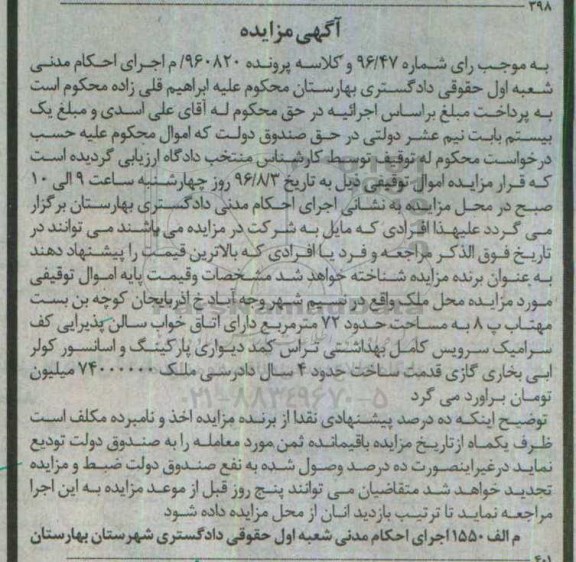 ۳۹۸
آگهی مزایده
به موجب رای شماره ۹۶/۴۷ و کلاسه پرونده ۹۶۰۸۲۰/ م اجرای احکام مدنی
شعبه اول حقوقی دادگستری بهارستان محکوم علیه ابراهیم قلی زاده محکوم است
به پرداخت مبلغ براساس اجرائیه در حق محکوم له آقای علی اسدی و مبلغ یک
بیستم بابت نیم عشر دولتی در حق صندوق دولت که اموال محکوم علیه حسب
درخواست محکوم له توقیف توسط کارشناس منتخب دادگاه ارزیابی گردیده است
که قرار مزایده اموال توقیفی ذیل به تاریخ ۹۶/۸/۳ روز چهارشنبه ساعت ۹ الی ۱۰
صبح در محل مزایده به نشانی اجرای احکام مدنی دادگستری بهارستان برگزار
می گردد علیهذا افرادی که مایل به شرکت در مزایده می باشند می توانند در
تاریخ فوق الذکر مراجعه و فرد یا افرادی که بالاترین قیمت را پیشنهاد دهند
به عنوان برنده مزایده شناخته خواهد شد مشخصات وقیمت پایه اموال توقیفی
مورد مزایده محل ملک واقع در نسیم شهر وجه آباد خ اذربایجان کوچه بن بست
مهتاب پ ۸ به مساحت حدود ۷۲ مترمربع دارای اتاق خواب سالن پذیرایی کف
سرامیک سرویس کامل بهداشتی تراس کمد دیواری پارکینگ و اسانسور کولر
ابی بخاری گازی قدمت ساخت حدود ۴ سال دادرسی ملک ۷۴۰۰۰۰۰۰ میلیون
تومان براورد می گرد
توضیح اینکه ده درصد پیشنهادی نقدا از برنده مزایده اخذ و نامبرده مکلف است
ظرف یکماه ازتاریخ مزایده باقیمانده ثمن مورد معامله را به صندوق دولت تودیع
نماید درغیراینصورت ده درصد وصول شده به نفع صندوق دولت ضبط و مزایده
تجدید خواهد شد متقاضیان می توانند پنج روز قبل از موعد مزایده به این اجرا
مراجعه نماید تا ترتیب بازدید انان از محل مزایده داده شود
م الف ۱۵۵۰ اجرای احکام مدنی شعبه اول حقوقی دادگستری شهرستان بهارستان
۴۰۱
۰۲۱-۸۸۳۴۹۶۷۰-۵